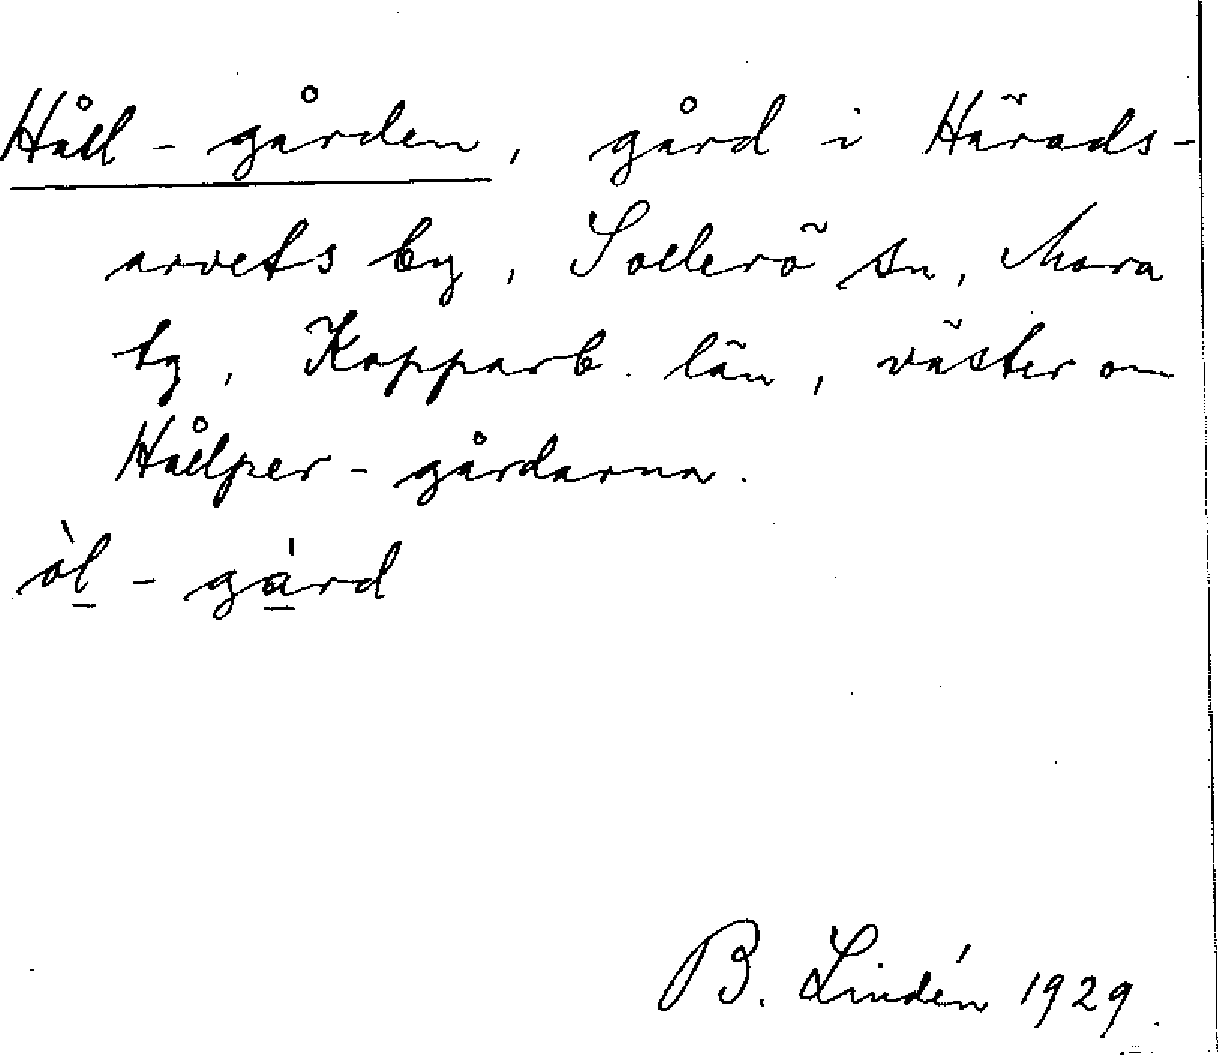 Håll-gården, gård i Härads-
arvets by, Sollerö sn, Mora
tg, Kopparb. län, väster om
Hållper-gårdarna.
òl-gård
B. Lindén 1929.